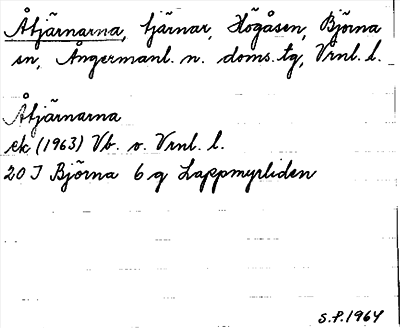 Åtjärnarna, tjärnar, Högåsen, Björna
sn, Ångermanl. n. doms. tg, Vrnl. l.
Åtjärnarna
ek (1963) Vb. o. Vrnl. l.
20 I Björna 6 g Lappmyrliden
S.P. 1964